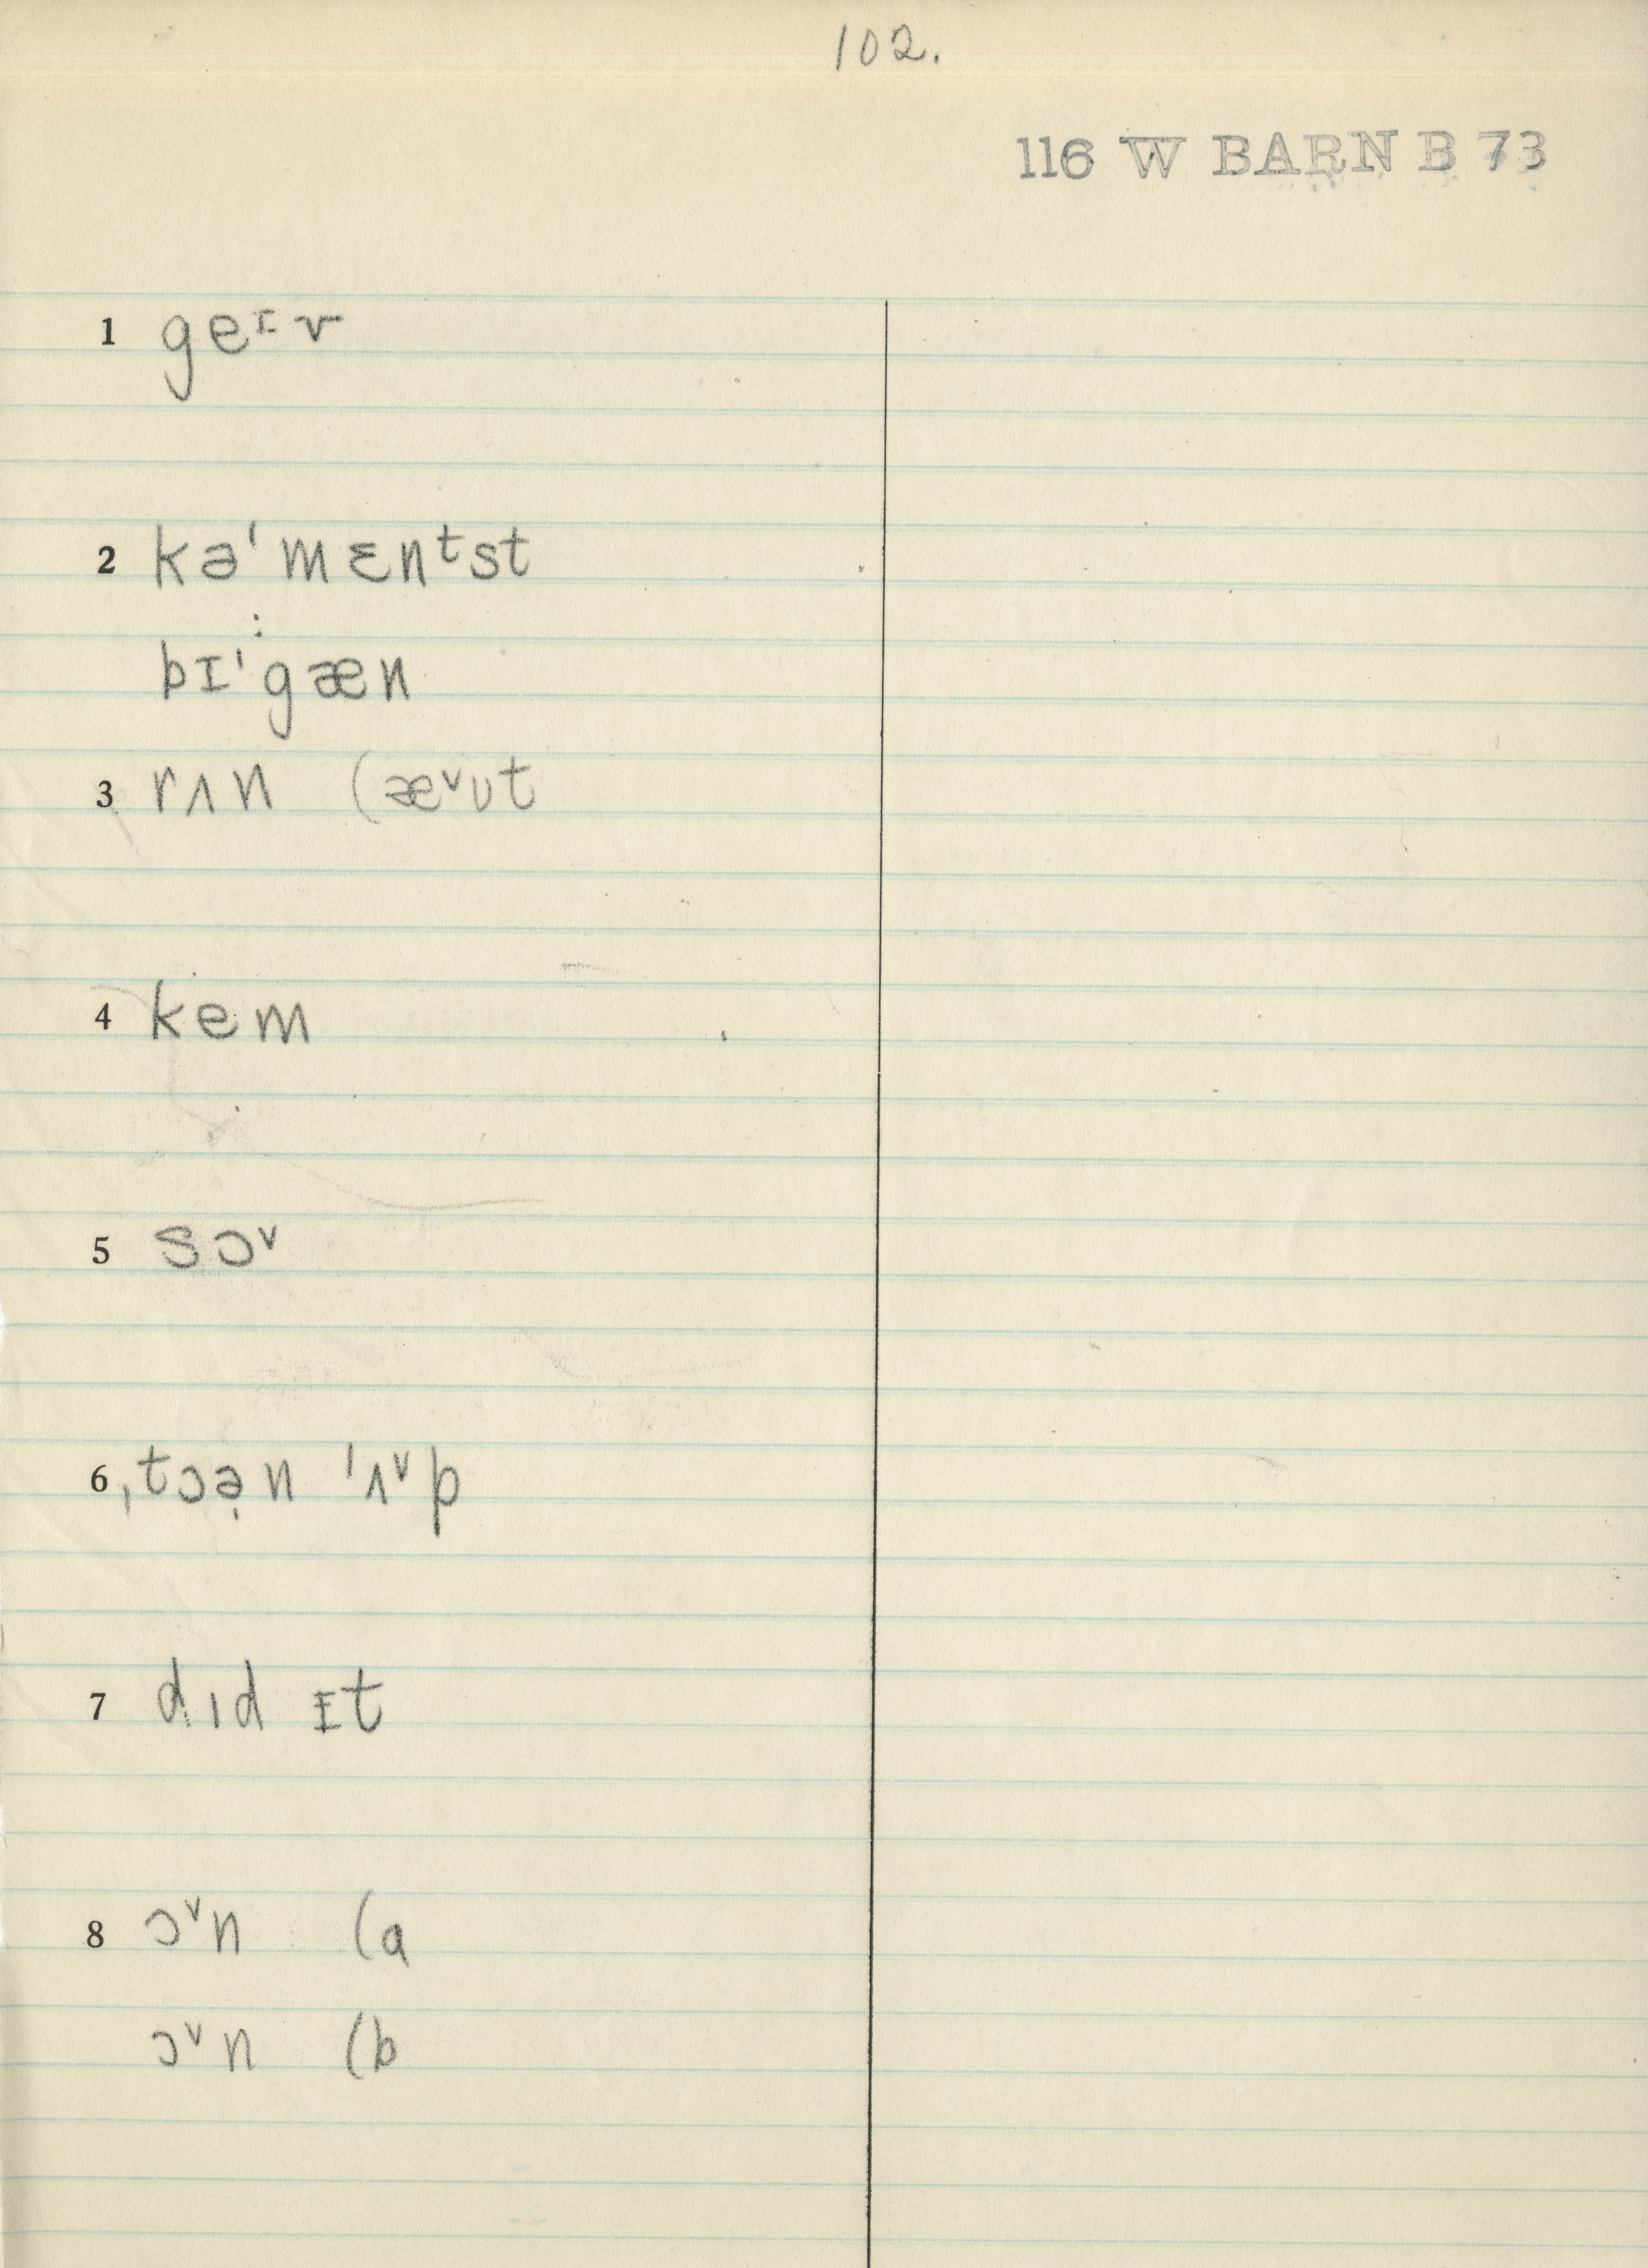 102.
116 W BARN B 73
1 geᶦv
2 kəˈmɛnᵗst
:
bɪˈgæn
3 rʌn (æᵛʊt
4 kem
5 sɔᵛ
6 ˌtɔə̣n ˈʌᵛp
7 dɪd ɪt
8 ɔᵛn (a
ɔᵛn (b